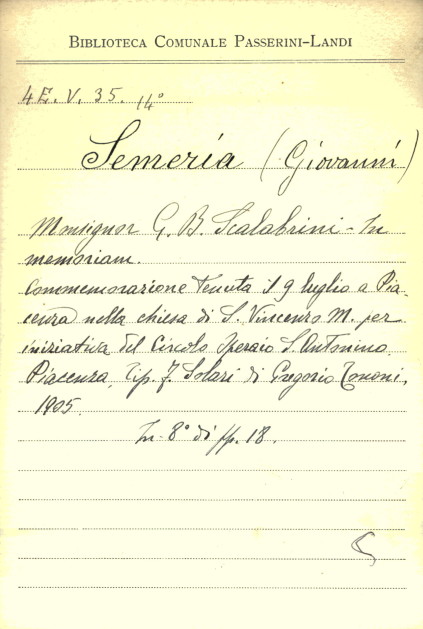 BIBLIOTECA COMUNALE PASSERINI-LANDI
4E. V. 35. 14°
Semeria (Giovanni)
Monsignor G. B. Scalabrini - In
memoriam.
Commemorazione tenuta il 9 luglio a Pia-
cenza nella chiesa di S. Vincenzo M. per
iniziativa del Circolo Operaio S. Antonino.
Piacenza, Tip. F. Solari di Gregorio Tononi,
1905.
In 8° di pp. 18.